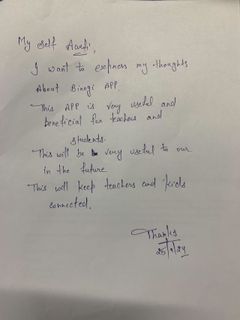 My self Aarfi,
I want to express my thoughts
About Binogi APP.
This APP is very useful and
beneficial for teachers and
students.
This will be very useful to our
in the future
This will keep teachers and kids
connected.
Thanks
25/9/24